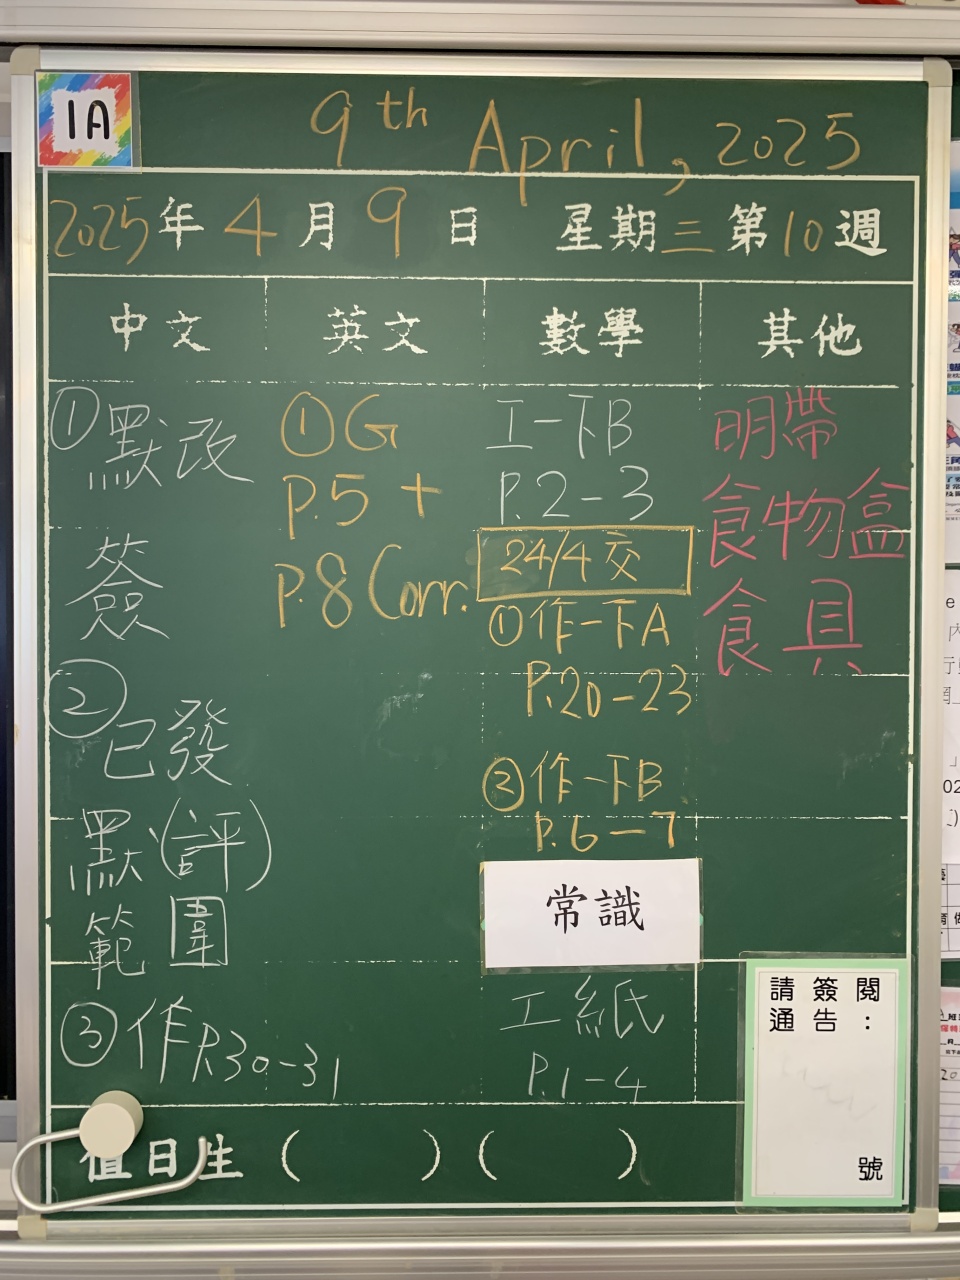 1A
9th April, 2025
2025年4月9日 星期三第10週
中文 英文 數學 其他
①默改
簽
②
已發
默(評)
範圍
③作P.30-31
①G
P.5 +
P.8 Corr.
工一下B
P.2-3
24/4交
①作一下A
P.20-23
②作一下B
P.6-7
常識
工紙
P.1-4
明帶
食物盒
食具
請簽閱
通告:
號
值日生 ( ) ( )